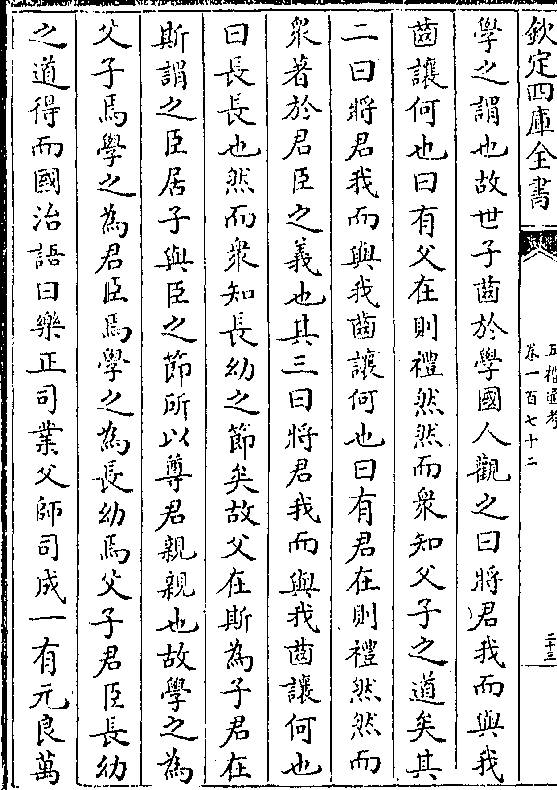 欽定四庫全書
五禮通考
卷一百七十二
二十三
學之謂也故世子齒於學國人觀之曰將君我而與我
齒讓何也曰有父在則禮然然而衆知父子之道矣其
二曰將君我而與我齒讓何也曰有君在則禮然然而
衆著於君臣之義也其三曰將君我而與我齒讓何也
曰長長也然而衆知長幼之節矣故父在斯為子君在
斯謂之臣居子與臣之節所以尊君親親也故學之為
父子焉學之為君臣焉學之為長幼焉父子君臣長幼
之道得而國治語曰樂正司業父師司成一有元良萬